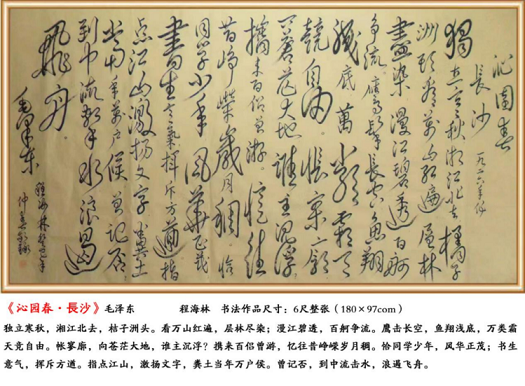 沁园春
長沙 一九二五年作
獨立寒秋湘江北去橘子
洲頭看萬山紅遍层林
盡染漫江碧透百舸
争流鷹擊長空鱼翔
浅底萬类霜天
競自由怅寥廓
问苍茫大地谁主沉浮
携来百侣曾游憶往
昔峥嵘歲月稠恰
同学少年风华正茂
書生意氣挥斥方遒指
点江山激扬文字粪土
当年萬户侯曾记否
到中流擊水浪遏
飛舟
毛泽东
程海林
《沁园春·長沙》毛泽东 程海林 书法作品尺寸：6尺整张（180×97com）
独立寒秋，湘江北去，桔子洲头。看万山红遍，层林尽染；漫江碧透，百舸争流。鹰击长空，鱼翔浅底，万类霜
天竞自由。帐寥廓，向苍茫大地，谁主沉浮？携来百侣曾游，忆往昔峥嵘岁月稠。恰同学少年，风华正茂；书生
意气，挥斥方遒。指点江山，激扬文字，粪土当年万户侯。曾记否，到中流击水，浪遏飞舟。